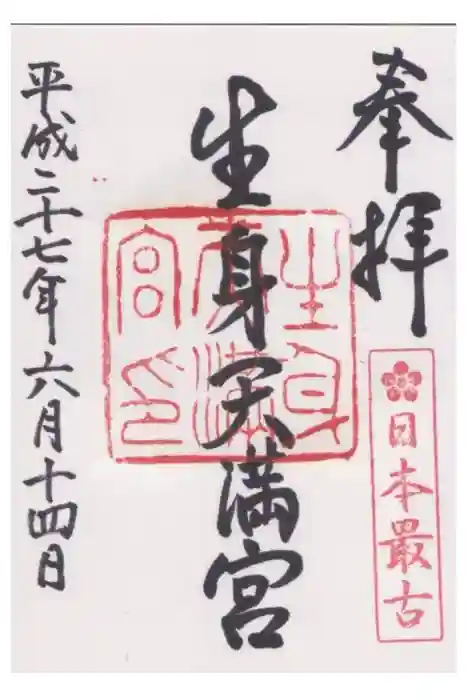 奉拝
日本最古
生身天満宮
生身天満宮印
平成二十七年六月十四日